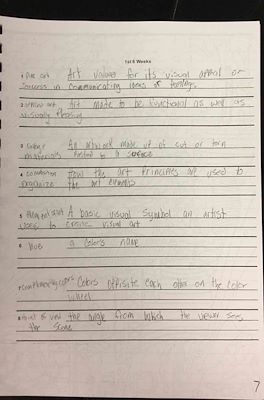 1st 6 Weeks
1 Fine art Art valued for its visual appeal or
success in communicating ideas or feelings.
2 Art made to be functional as well as
visually pleasing
3 Collage An artwork made up of cut or torn
materials pasted to a surface
4 composition How the art principles are used to
organize the art elements
5 A basic visual symbol an artist
uses to create visual art
6 hue a color's name
7 complementary colors Colors opposite each other on the color
wheel
8 Point of view the angle from which the viewer sees
the scene
7